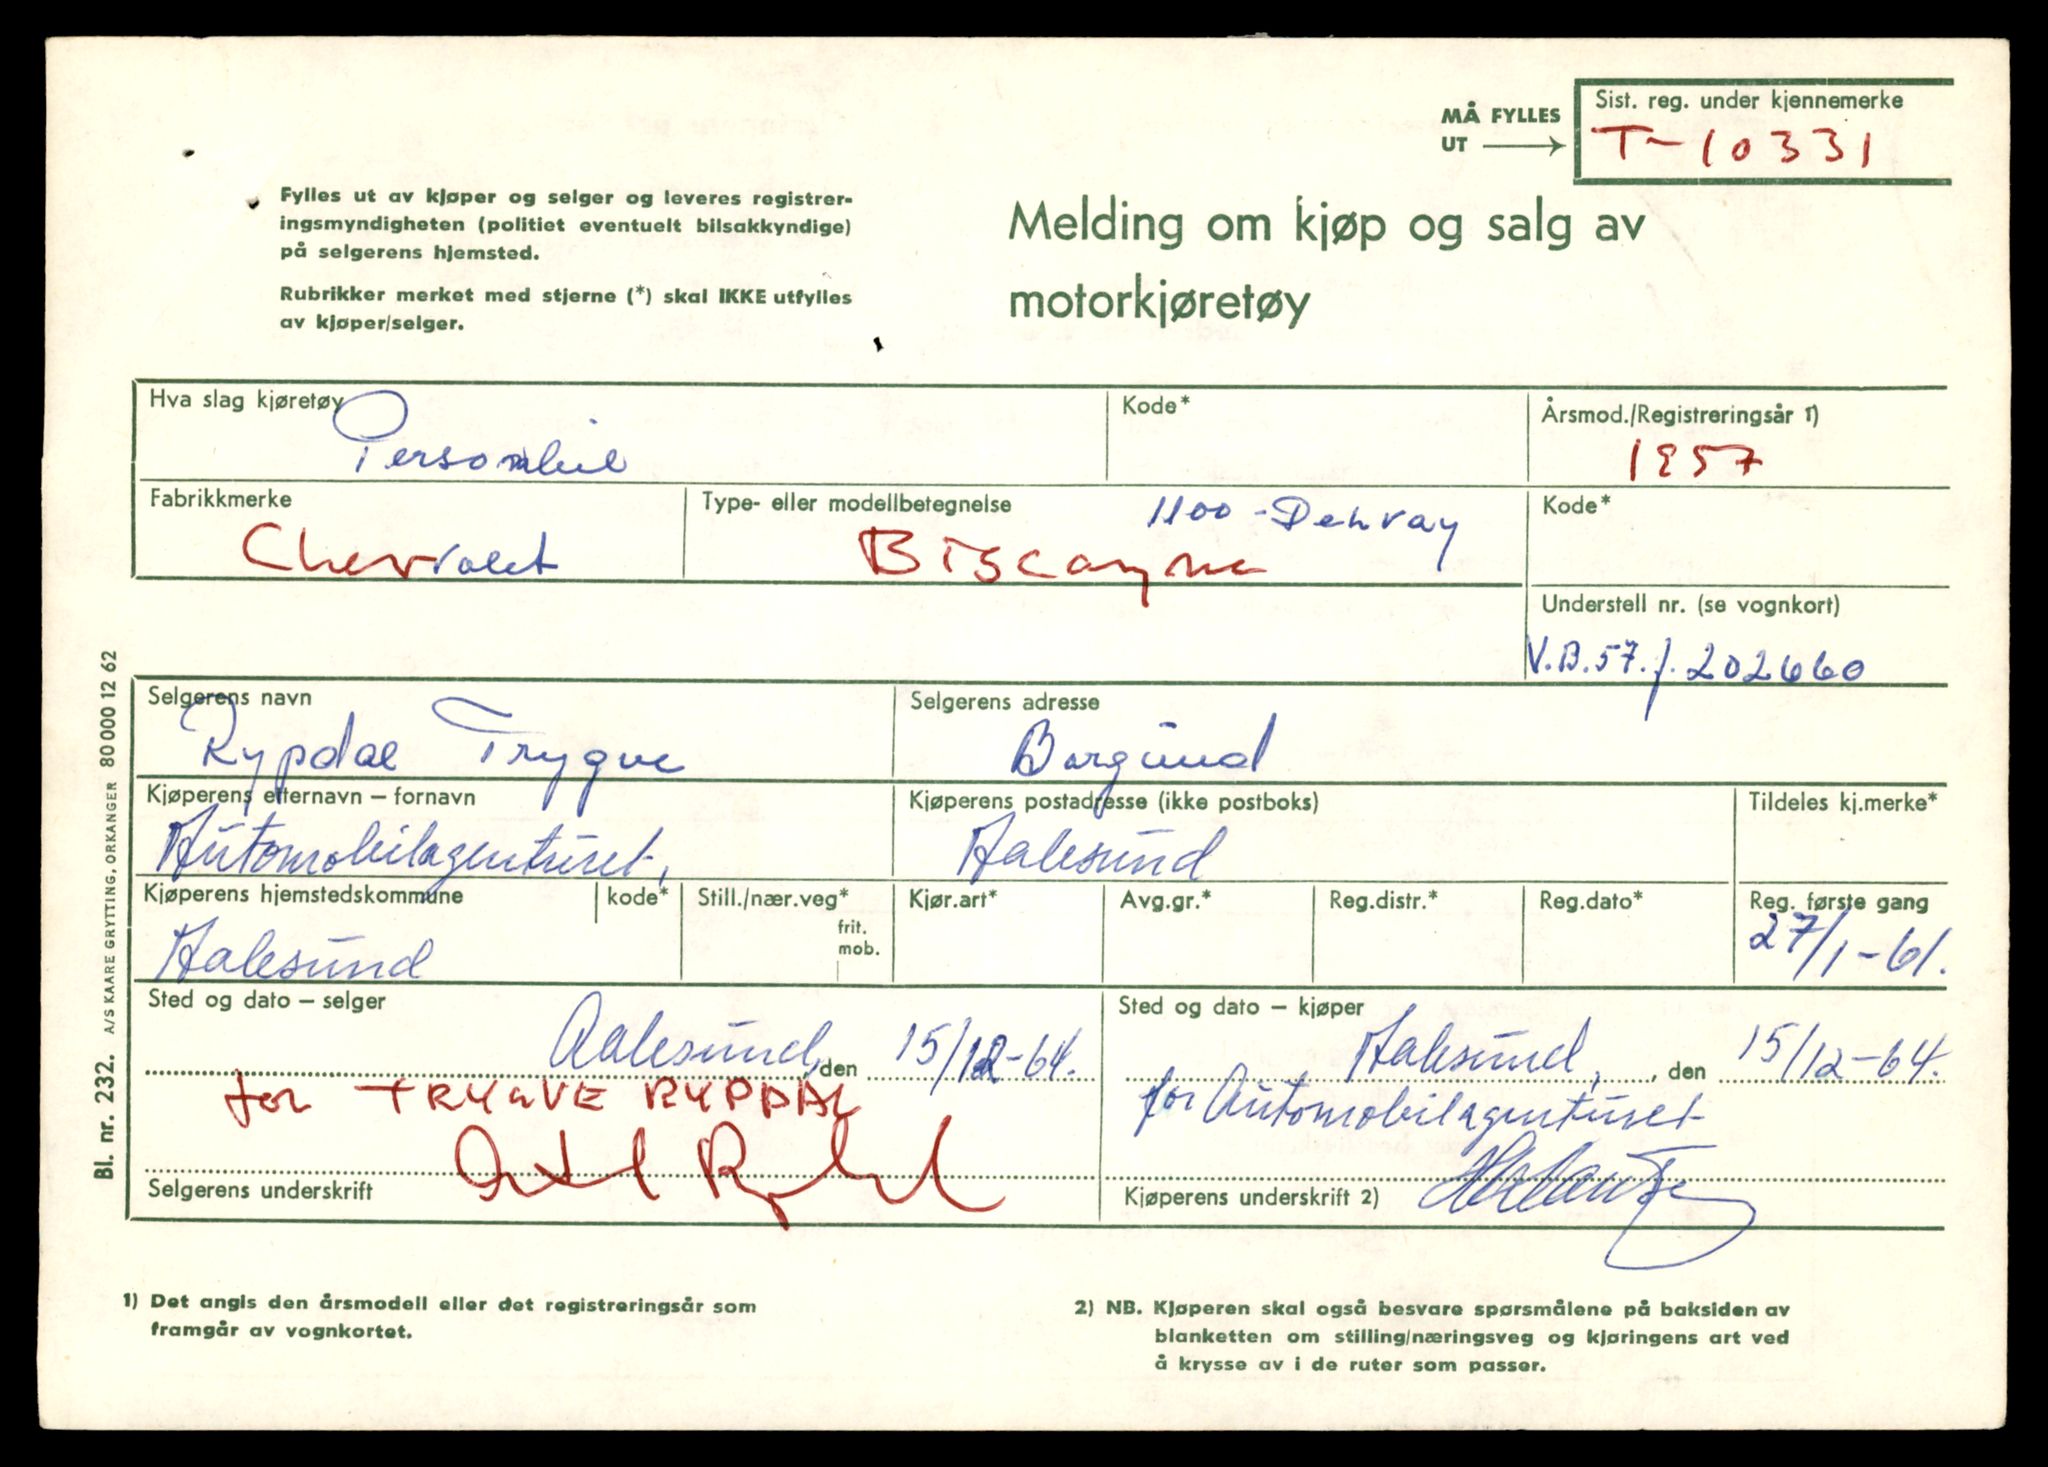 MÅ FYLLES
UT
Sist. reg. under kjennemerke
T-10331
Fylles ut av kjøper og selger og leveres registrer-
ingsmyndigheten (politiet eventuelt bilsakkyndige)
på selgerens hjemsted.
Rubrikker merket med stjerne (*) skal IKKE utfylles
av kjøper/selger.
Melding om kjøp og salg av
motorkjøretøy
Hva slag kjøretøy
Personbil
Kode*
Årsmod./Registreringsår 1)
1957
Fabrikkmerke
Chevrolet
Type- eller modellbetegnelse
1100 -
Biscayne
Kode*
Understell nr. (se vognkort)
V.B.57.j.202660
Selgerens navn
Rypdal Trygve
Selgerens adresse
Borgund
Kjøperens etternavn – fornavn
Automobilagenturet,
Kjøperens postadresse (ikke postboks)
Aalesund
Tildeles kj.merke*
Kjøperens hjemstedskommune
Aalesund
kode*
Still./nær.veg*
frit.
mob.
Kjør.art*
Avg.gr.*
Reg.distr.*
Reg.dato*
Reg. første gang
27/1-61.
Sted og dato – selger
Aalesund, den 15/12-64.
for TRYGVE RYPDAL
Selgerens underskrift
Rypdal
Sted og dato – kjøper
Aalesund, , den 15/12-64.
for Automobilagenturet
Kjøperens underskrift 2)
1) Det angis den årsmodell eller det registreringsår som
framgår av vognkortet.
2) NB. Kjøperen skal også besvare spørsmålene på baksiden av
blanketten om stilling/næringsveg og kjøringens art ved
å krysse av i de ruter som passer.
Bl. nr. 232. A/S KAARE GRYTTING, ORKANGER 80 000 12 62